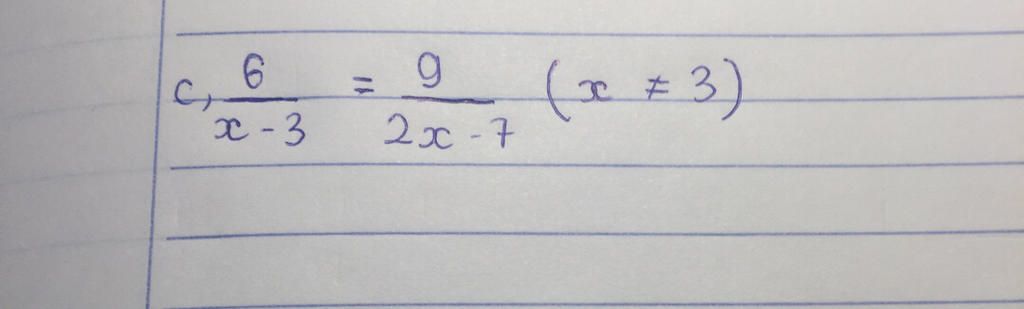 c, 6/(x - 3) = 9/(2x - 7) (x ≠ 3)